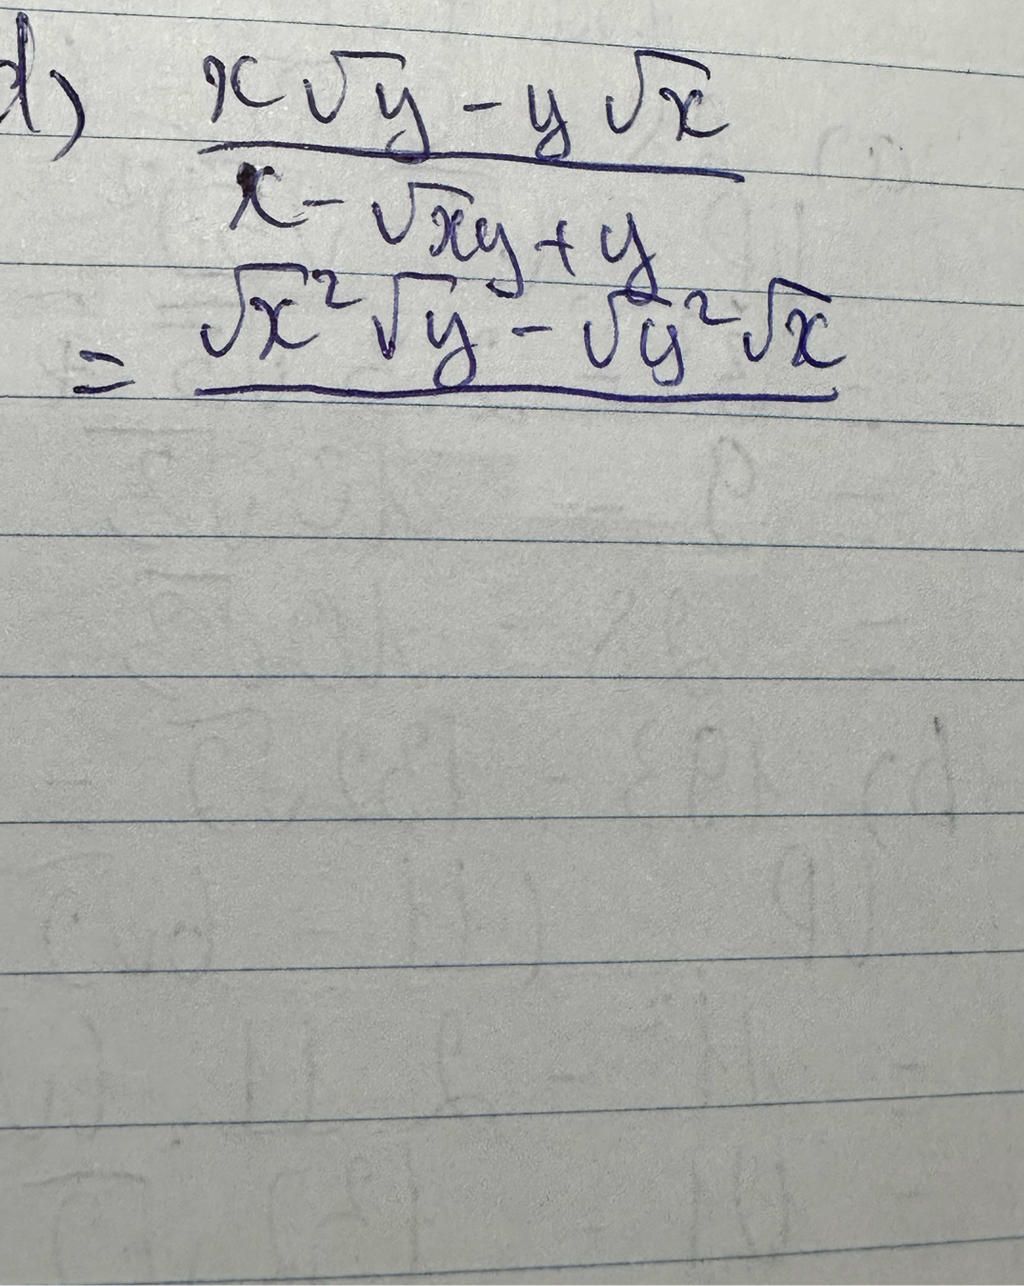 d) x√y - y√x
x - √xy + y
= √x² √y - √y² √x